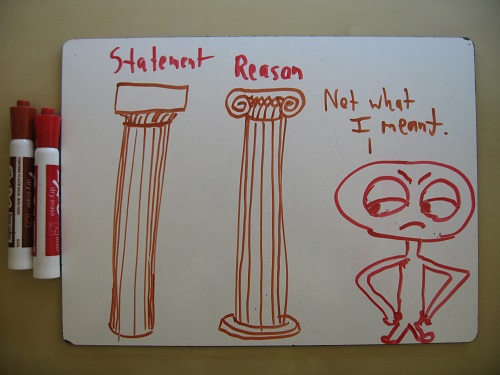 Statement
Reason
Not what
I meant.